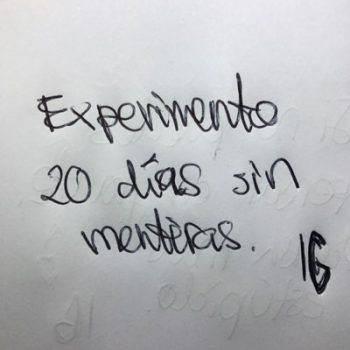 Experimento
20 días sin
mentiras.
16